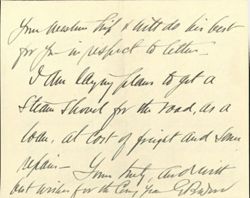 will do his best
for you in respect to letter.
I am laying plans to get a
Steam Shovel for the road, as a
loan, at cost of freight and some
repair—
Yours truly, and with
best wishes for the Coming Year